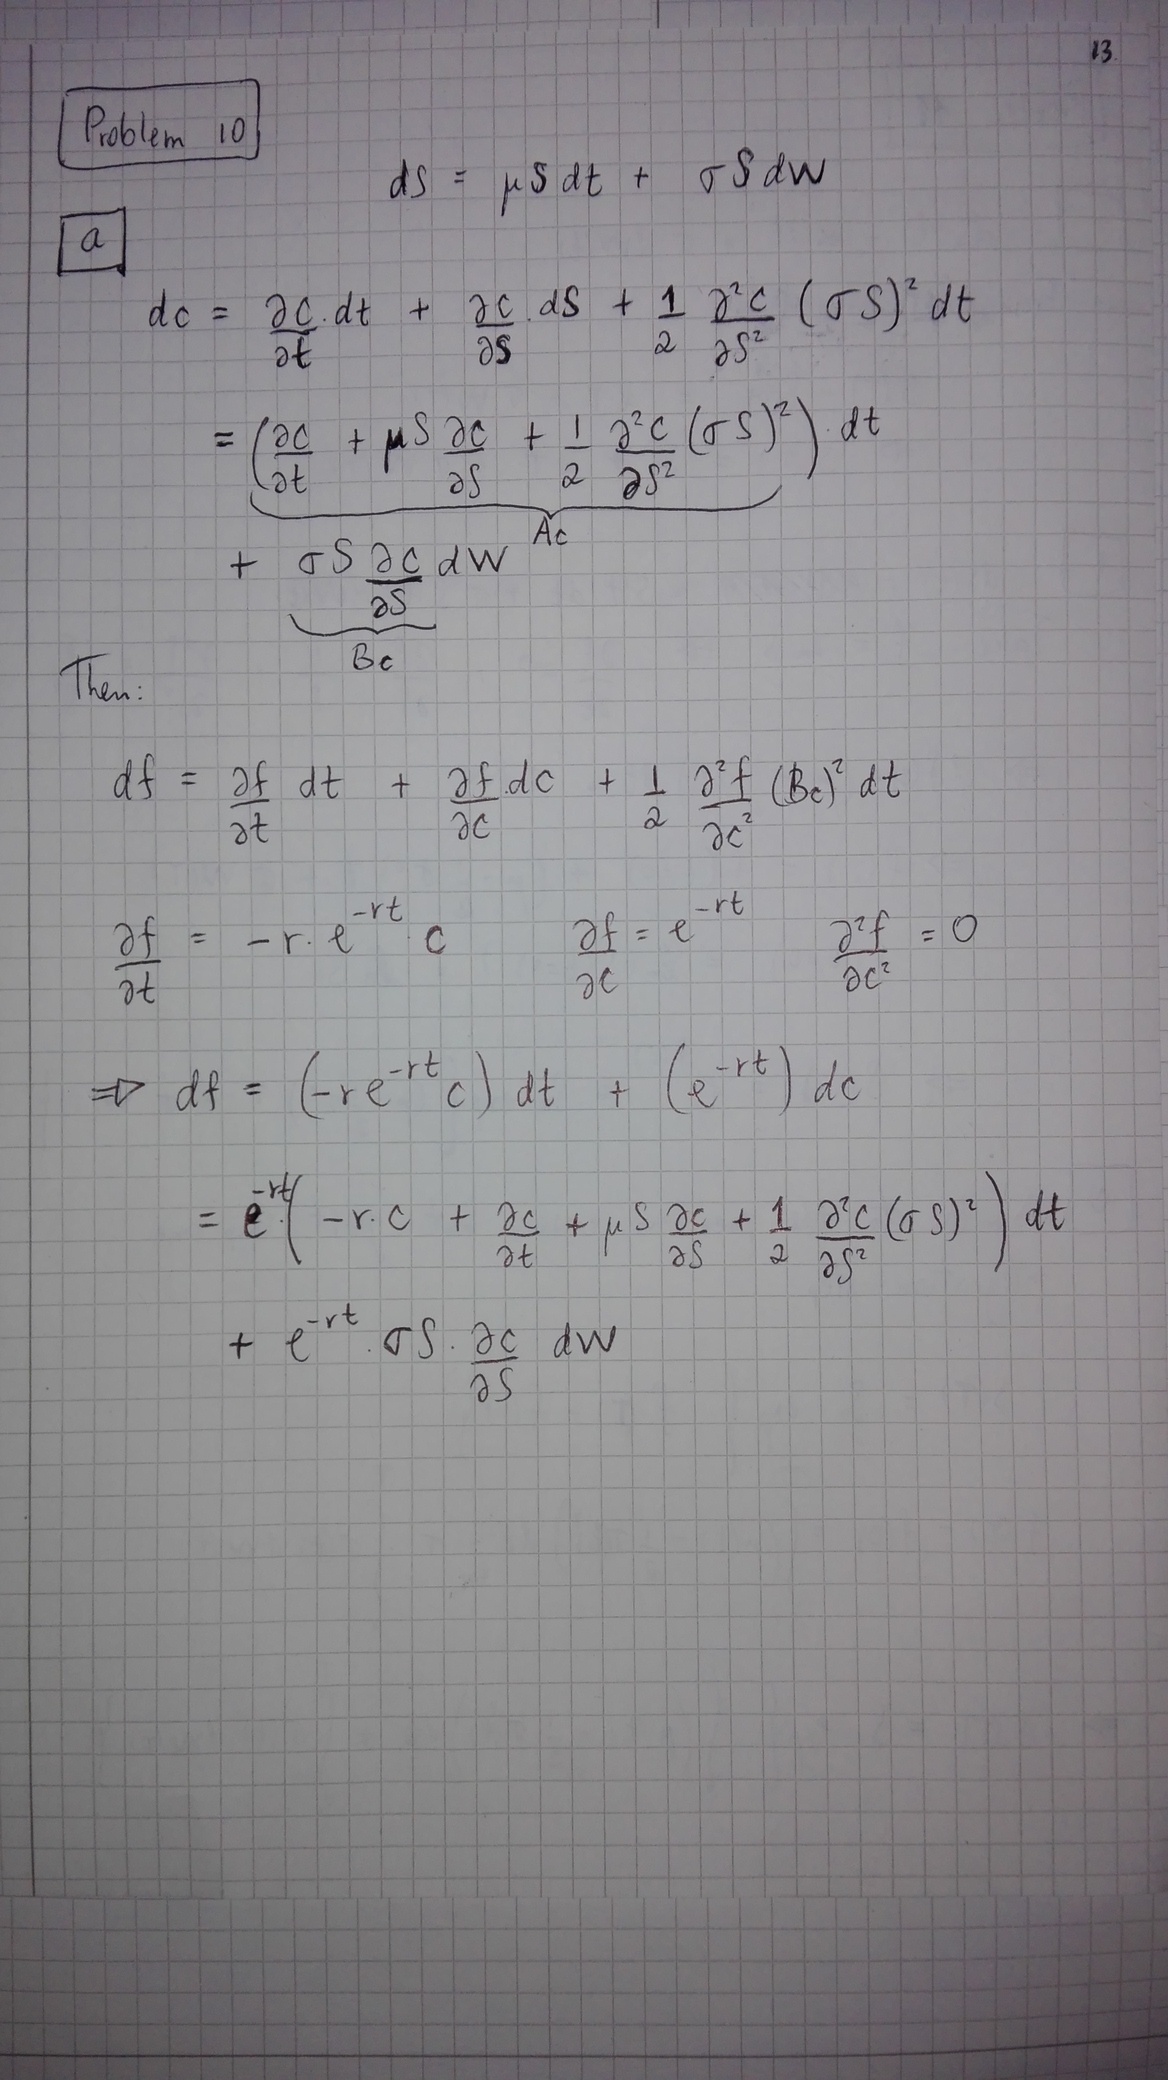 13
Problem 10
dS = μS dt + σS dW
a
dc = ∂c/∂t · dt + ∂c/∂S · dS + 1/2 ∂²c/∂S² (σS)² dt
= (∂c/∂t + μS ∂c/∂S + 1/2 ∂²c/∂S² (σS)²) · dt
Ac
+ σS ∂c/∂S dW
Bc
Then:
df = ∂f/∂t dt + ∂f/∂c · dc + 1/2 ∂²f/∂c² (Bc)² dt
∂f/∂t = -r · e^{-rt} · c    ∂f/∂c = e^{-rt}    ∂²f/∂c² = 0
⇒ df = (-r e^{-rt} c) dt + (e^{-rt}) dc
= e^{-rt} · (-r · c + ∂c/∂t + μS ∂c/∂S + 1/2 ∂²c/∂S² (σS)²) dt
+ e^{-rt} · σS · ∂c/∂S dW